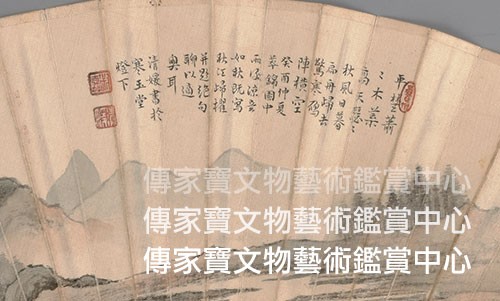 平楚蕭
〻木葉
高天瑟〻
秋風日暮
扁舟歸去
驚寒鴉
陣橫空
癸酉仲夏
萃錦園中
雨後涼
如秋既寫
秋江歸櫂
并題絕句
聊以適
興耳
清媛書於
寒玉堂
燈下
傳家寶文物藝術鑑賞中心
傳家寶文物藝術鑑賞中心
傳家寶文物藝術鑑賞中心